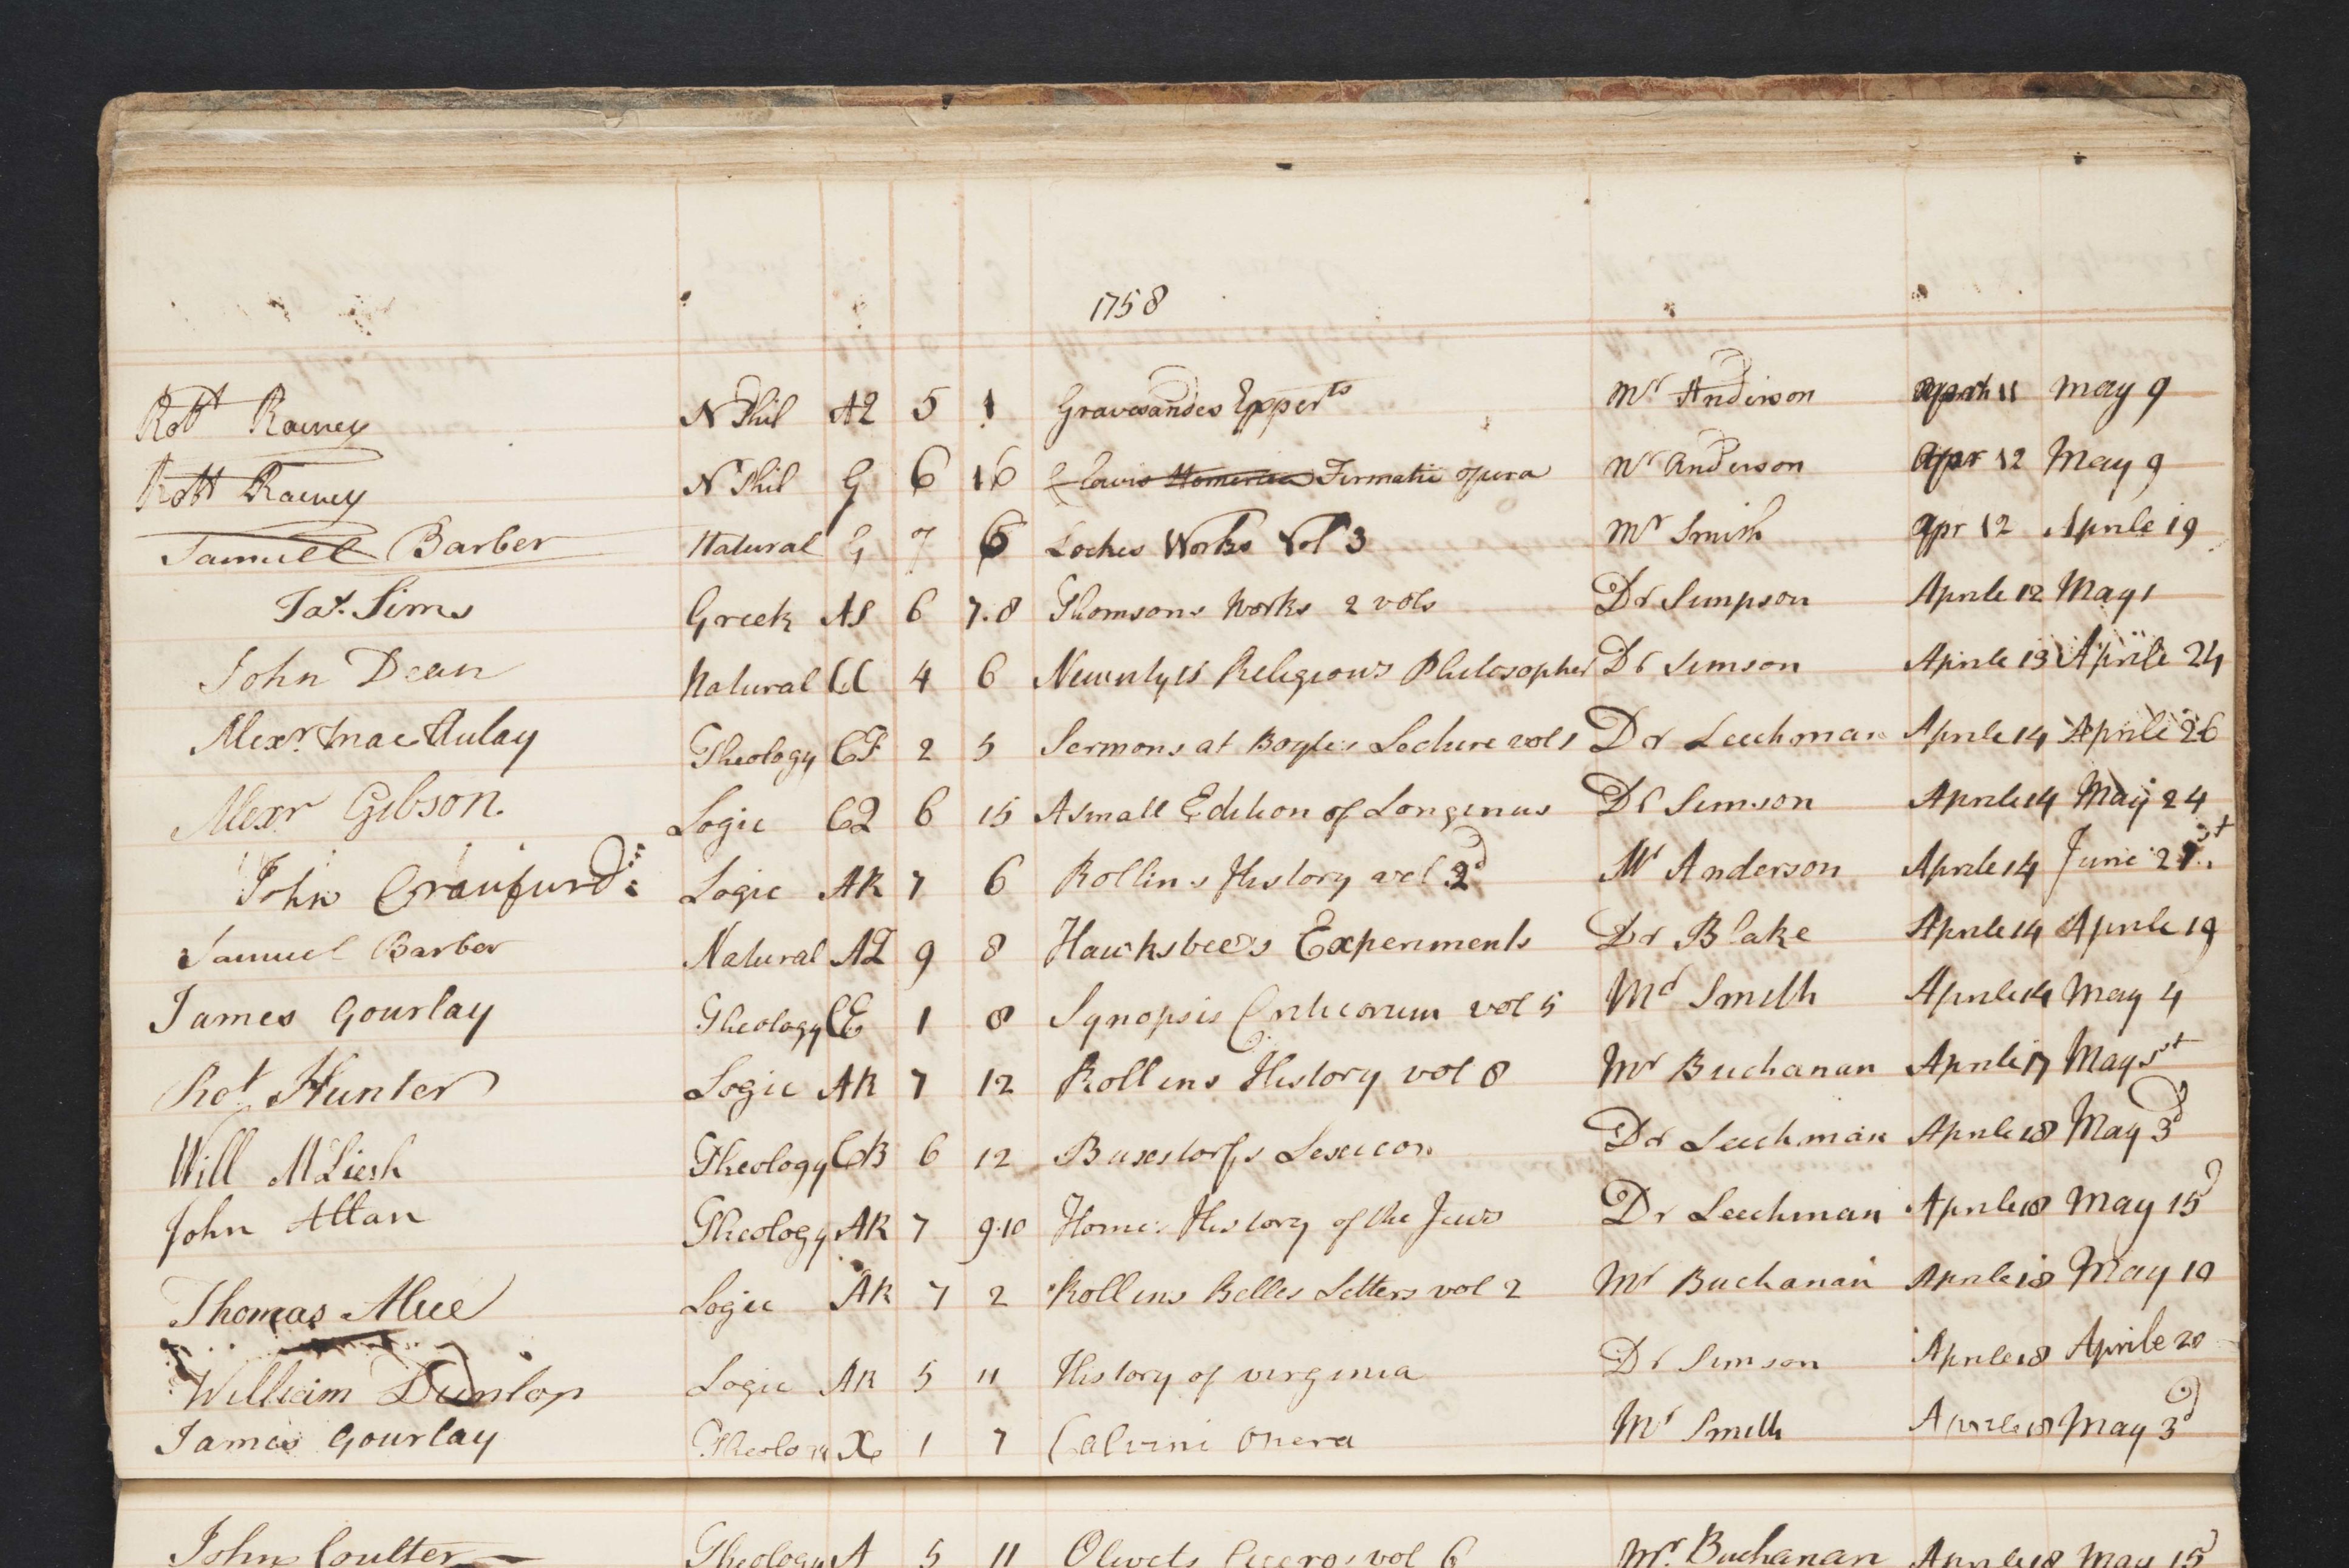 1758
Robt Rainey N Phil A2 5 1 Gravesandes Experts Mr Anderson Aprile 11 May 9
Robt Rainey N Phil G 6 16 Clavis Homerica Firmatii opera Mr Anderson Apr 12 May 9
Samuell Barber Natural G 7 6 Lockes Works Vol 3 Mr Smith Apr 12 Aprile 19
Jas. Sims Greek AS 6 7.8 Thomsons Works 2 vols Dr Simpson Aprile 12 May 1
John Dean Natural 4 6 Niewntyts Religious Philosopher Dr Simson Aprile 13 Aprile 24
Alexr Mac Aulay Theology CF 2 5 Sermons at Boyles Lecture vol 1 Dr Leechman Aprile 14 Aprile 26
Alexr Gibson. Logic CQ 6 15 A small Edition of Longinus Dr Simson Aprile 14 May 24
John Craufurd Logic AR 7 6 Rollins History vol 2d Mr Anderson Aprile 14 June 21st
Samuel Barber Natural AZ 9 8 Hauksbee's Experiments Dr Blake Aprile 14 Aprile 19
James Gourlay Theology CE 1 8 Synopsis Criticorum vol 5 Mr Smith Aprile 14 May 4
Rot Hunter Logic AR 7 12 Rollins History vol 8 Mr Buchanan Aprile 17 May 1st
Will McLiesh Theology CB 6 12 Buxstorfs Lexicon Dr Leechman Aprile 18 May 3d
John Allan Theology AR 7 9.10 Home's History of the Jews Dr Leechman Aprile 18 May 15d
Thomas Alice Logic AR 7 2 Rollins Belles Letters vol 2 Mr Buchanan Aprile 18 May 10
William Dunlop Logic AR 5 11 History of virginia Dr Simson Aprile 18 Aprile 20
James Gourlay Theology X 1 7 Calvini Opera Mr Smith Aprile 18 May 3d
John Coulter Theology A 5 11 Olivets Ciceros vol 6 Mr. Buchanan Aprile 18 May 15d